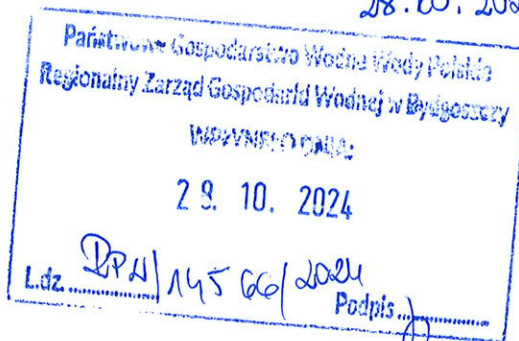 Państwowe Gospodarstwo Wodne Wody Polskie
Regionalny Zarząd Gospodarki Wodnej w Bydgoszczy
WPŁYNĘŁO DNIA:
10. 2024
L.dz. 14566/2024
Podpis